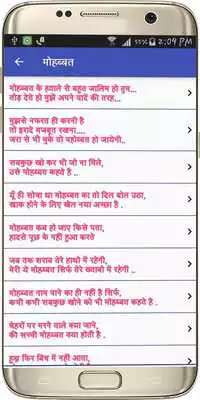 2:04 PM
मोहब्बत
मोहब्बत के हवाले से बहुत जालिम हो तुम...
तोड़ देते हो मुझे अपने यादों की तरह...
मुझसे नफरत ही करनी है
तो इरादे मजबूत रखना....
जरा से भी चुके तो मोहब्बत हो जायेगी..
सबकुछ खो कर भी जो ना मिले,
उसे मोहब्बत कहते है .
यूँ ही सोचा था मोहब्बत का तो दिल बोल उठा,
खाक होने के लिए खेल नया अच्छा है .
मोहब्बत कब हो जाए किसे पता,
हादसे पूछ के नहीं हुआ करते
जब तक शराब तेरे हाथो में रहेगी,
मेरी ये मोहब्बत सिर्फ तेरे ख्वाबो में रहेगी ..
मोहब्बत नाम पाने का ही नहीं है सिर्फ,
कभी कभी सबकुछ खोने को भी मोहब्बत कहते है .
चेहरों पर मरने वाले क्या जाने,
की सच्ची मोहब्बत क्या होती है .
हुन्नर फिर बिच में नहीं आता,